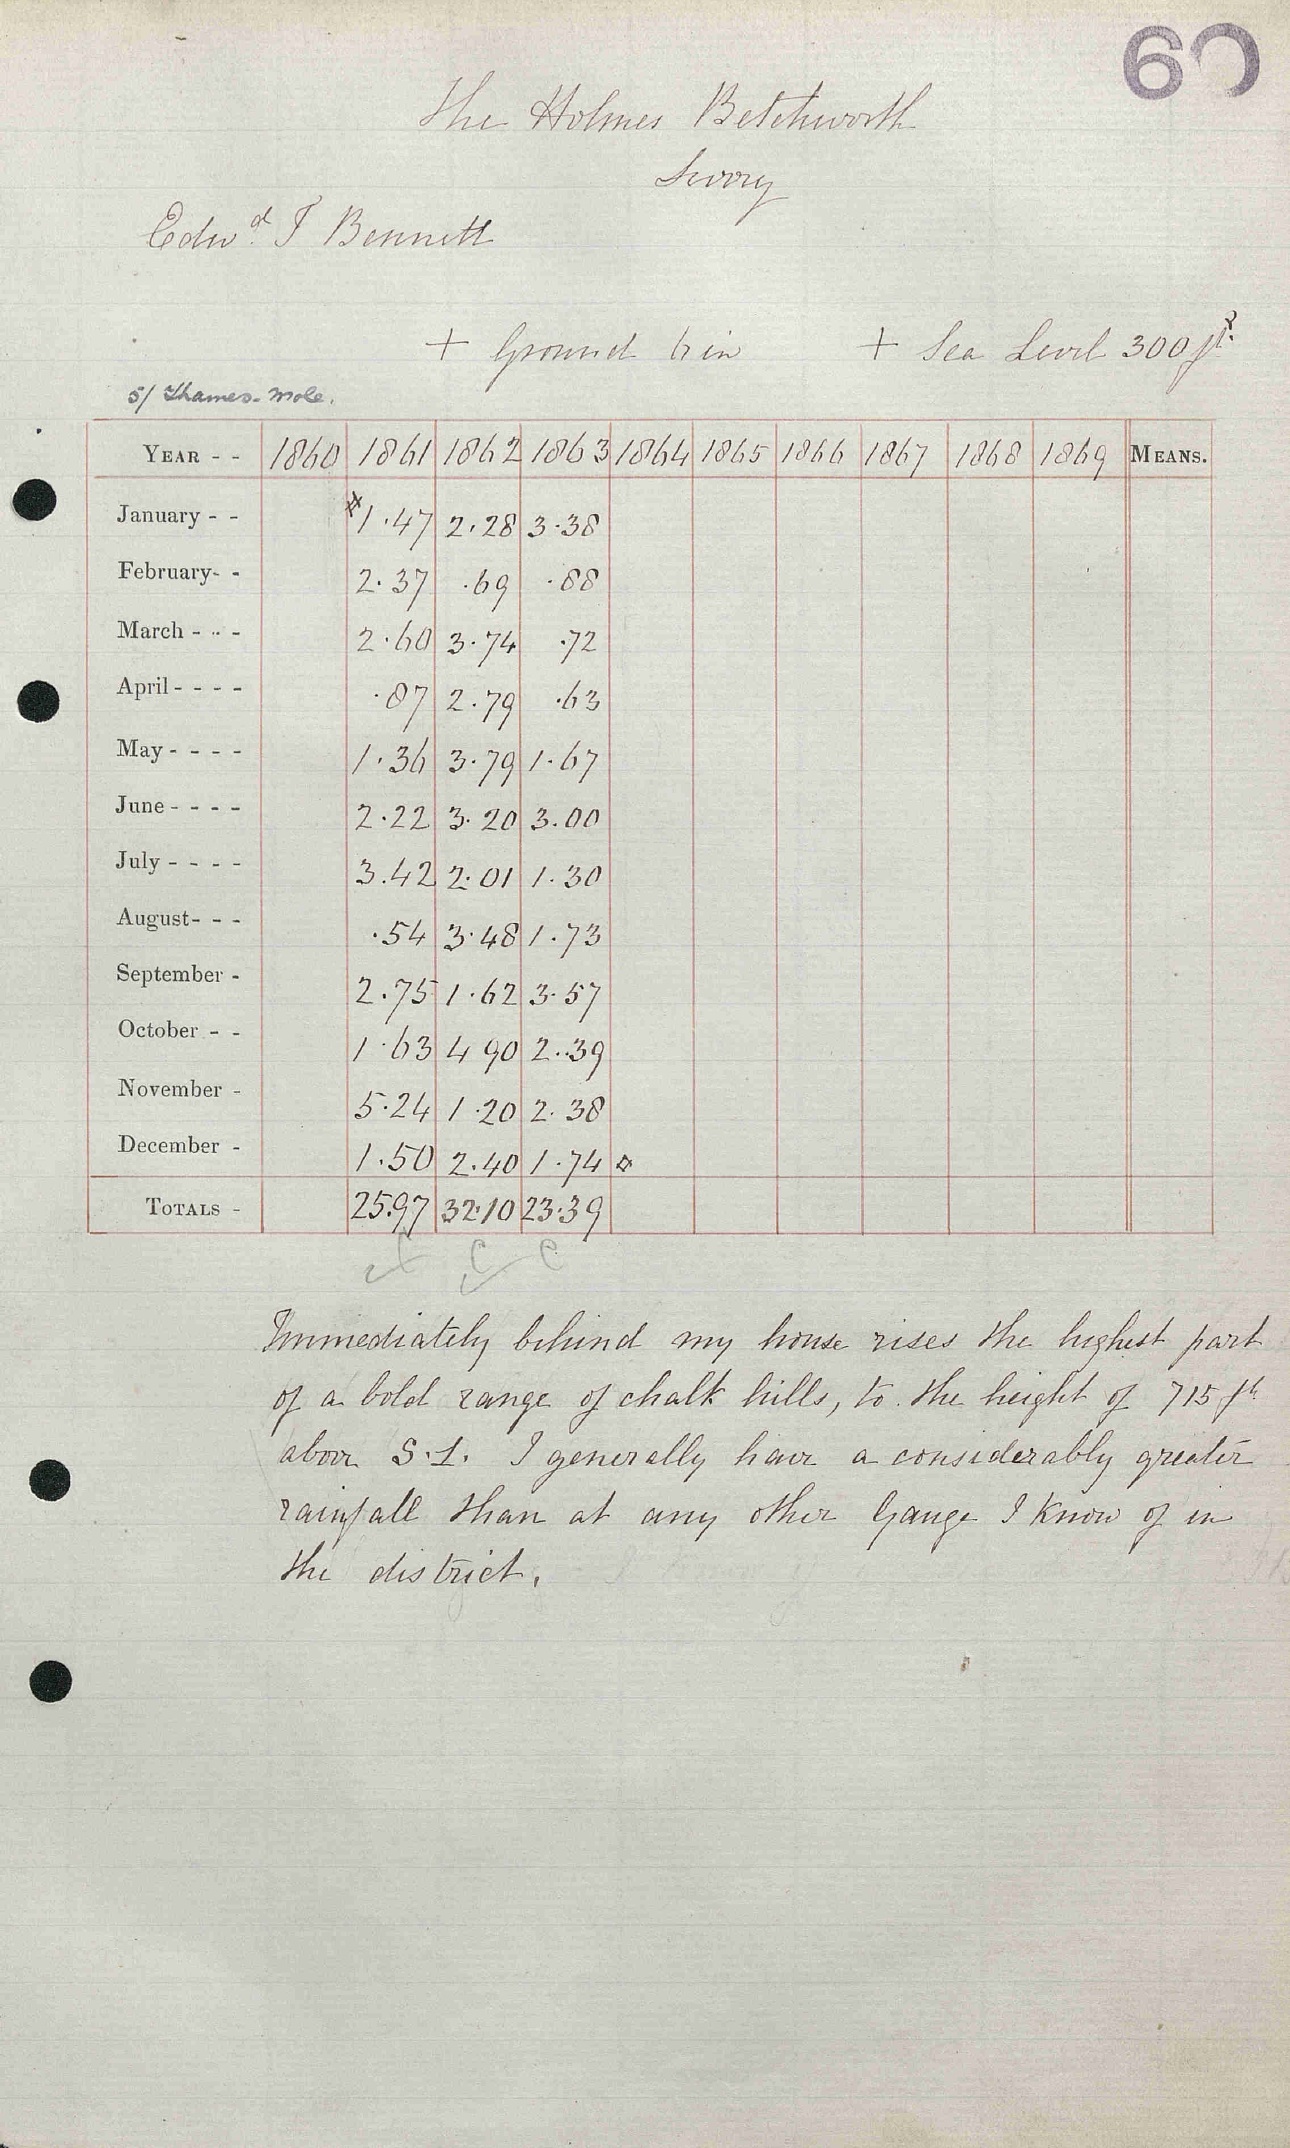 60
The Holmes Betchworth
Surrey
Edwd. T Bennett
+ Ground 6 in + Sea Level 300 ft.
5/ Thames-Mole.
YEAR - - 1860 1861 1862 1863 1864 1865 1866 1867 1868 1869 MEANS.
January - - 1.47 2.28 3.38
February- - 2.37 .69 .88
March - - - 2.60 3.74 .72
April - - - - .87 2.79 .63
May - - - - 1.36 3.79 1.67
June - - - - 2.22 3.20 3.00
July - - - - 3.42 2.01 1.30
August- - - .54 3.48 1.73
September - 2.75 1.62 3.57
October - - 1.63 4 90 2.39
November - 5.24 1.20 2.38
December - 1.50 2.40 1.74
TOTALS - 25.97 32.10 23.39
C C C
Immediately behind my house rises the highest part
of a bold range of chalk hills, to the height of 715 ft
above S.L. I generally have a considerably greater
rainfall than at any other Gauge I know of in
the district.